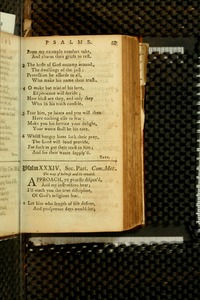 PSALMS. 67
From my example comfort take,
And charm their griefs to rest.
2 The hosts of God encamp around,
The dwellings of the just:
Protection he affords to all,
Who make his name their trust.
O make but trial of his love,
Experience will decide;
How blest are they, and only they
Who in his truth confide.
Fear him, ye saints and you will then
Have nothing else to fear:
Make you his service your delight,
Your wants shall be his care.
While hungry lions lack their prey,
The Lord will food provide,
For such as put their trust in him;
And see their wants supply'd.
TATE.
Psalm XXXIV. Sec. Part. Com. Met.
APPROACH, ye piously dispos'd,
And my instructions hear;
I'll teach you the true discipline,
Of God's religious fear.
Let him who length of life desires,
And prosperous days would see;